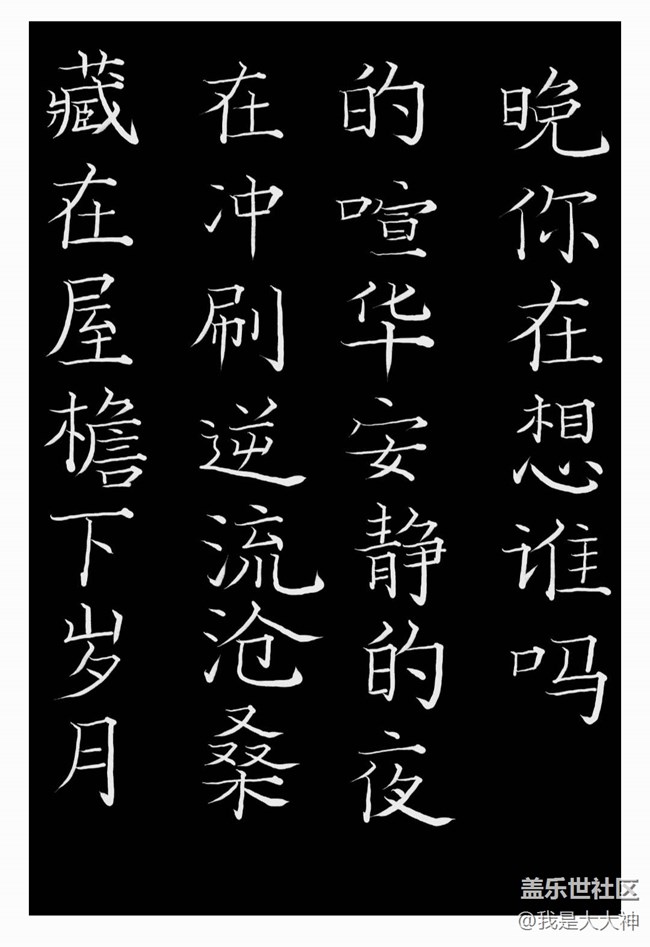 藏在屋檐下岁月
在冲刷逆流沧桑
的喧华安静的夜
晚你在想谁吗
盖乐世社区
@我是大大神